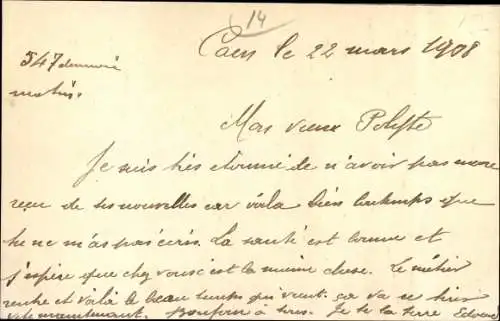 14
Caen le 22 mars 1908
547
matin.
Mon vieux Polyte
Je suis très étonné de n'avoir pas encore
reçu de tes nouvelles car voila bien lontemps que
tu ne m'as pas écris. La santé est bonne et
j'espère que chez vous c'est la même chose. Le métier
rentre et voilà le beau temps qui vient. ça va se tirer
vite maintenant. Bonjour a tous. Je te la serre Edouard